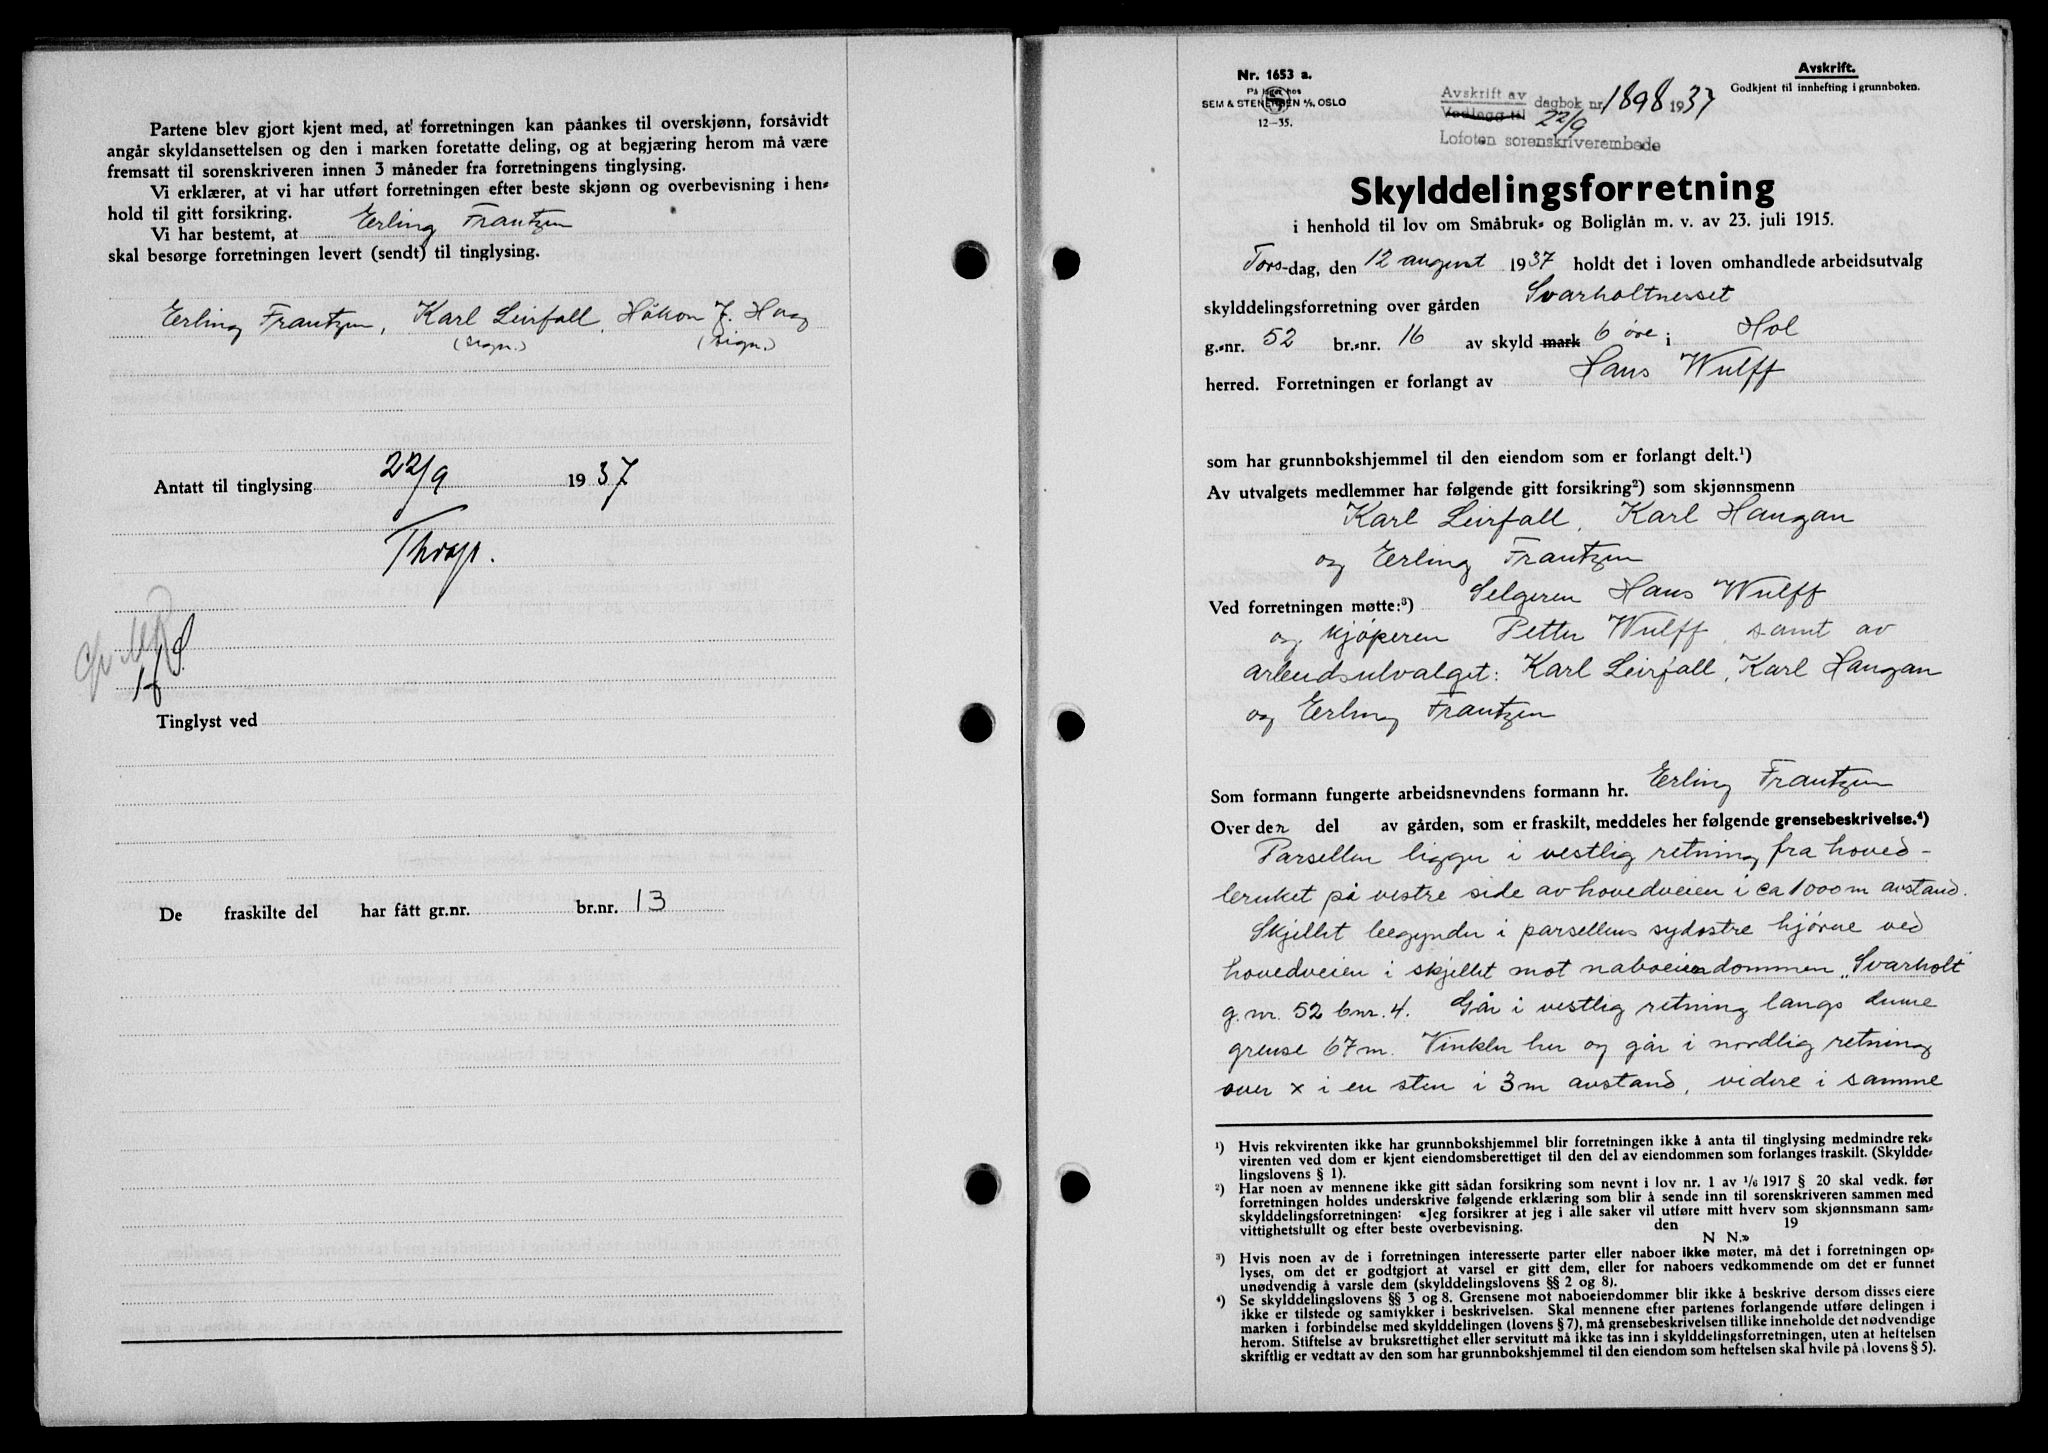 Partene blev gjort kjent med, at forretningen kan påankes til overskjønn, forsåvidt
angår skyldansettelsen og den i marken foretatte deling, og at begjæring herom må være
fremsatt til sorenskriveren innen 3 måneder fra forretningens tinglysing.
Vi erklærer, at vi har utført forretningen efter beste skjønn og overbevisning i hen=
hold til gitt forsikring.
Vi har bestemt, at Erling Frantzen
skal besørge forretningen levert (sendt) til tinglysing.
Erling Frantzen, Karl Leirfall, Håkon J. Haag
(sign.) (sign.)
Antatt til tinglysing 22/9 1937
Tinglyst ved
De fraskilte del har fått gr.nr. br.nr. 13
Nr. 1653 a.
På lager hos
SEM & STENERSEN A/S, OSLO
12—35.
Avskrift.
Godkjent til innhefting i grunnboken.
Avskrift av
Vedlegg til dagbok nr. 1898 1937
22/9
Lofoten sorenskriverembede
Skylddelingsforretning
i henhold til lov om Småbruk= og Boliglån m. v. av 23. juli 1915.
Tors-dag, den 12 august 1937 holdt det i loven omhandlede arbeidsutvalg
skylddelingsforretning over gården Svarholtnesset
g.=nr. 52 br.=nr. 16 av skyld mark 6 øre i Hol
herred. Forretningen er forlangt av Hans Wulff
som har grunnbokshjemmel til den eiendom som er forlangt delt.¹)
Av utvalgets medlemmer har følgende gitt forsikring²) som skjønnsmenn
Karl Leirfall, Karl Haugan
og Erling Frantzen
Ved forretningen møtte:³) Selgeren Hans Wulff
og kjøperen Petter Wulff, samt av
arbeidsutvalget: Karl Leirfall, Karl Haugan
og Erling Frantzen
Som formann fungerte arbeidsnevndens formann hr. Erling Frantzen
Over den del av gården, som er fraskilt, meddeles her følgende grensebeskrivelse.⁴)
Parsellen ligger i vestlig retning fra hoved-
bruket på vestre side av hovedveien i ca 1000 m avstand.
Skjellet begynder i parsellens sydøstre hjørne ved
hovedveien i skjellet mot naboeiendommen „Svarholt"
g. nr. 52 bnr. 4. Går i vestlig retning langs denne
grense 67 m. Vinkler her og går i nordlig retning
over x i en sten i 3 m avstand, videre i samme
¹) Hvis rekvirenten ikke har grunnbokshjemmel blir forretningen ikke å anta til tinglysing medmindre rek=
virenten ved dom er kjent eiendomsberettiget til den del av eiendommen som forlanges fraskilt. (Skyldde=
lingslovens § 1).
²) Har noen av mennene ikke gitt sådan forsikring som nevnt i lov nr. 1 av 1/6 1917 § 20 skal vedk. før
forretningen holdes underskrive følgende erklæring som blir å sende inn til sorenskriveren sammen med
skylddelingsforretningen: «Jeg forsikrer at jeg i alle saker vil utføre mitt hverv som skjønnsmann sam=
vittighetsfullt og efter beste overbevisning. den 19
N N.»
³) Hvis noen av de i forretningen interesserte parter eller naboer ikke møter, må det i forretningen op=
lyses, om det er godtgjort at varsel er gitt dem, eller for naboers vedkommende om det er funnet
unødvendig å varsle dem (skylddelingslovens §§ 2 og 8).
⁴) Se skylddelingslovens §§ 3 og 8. Grensene mot naboeiendommer blir ikke å beskrive dersom disses eiere
ikke er tilstede og samtykker i beskrivelsen. Skal mennene efter partenes forlangende utføre delingen i
marken i forbindelse med skylddelingen (lovens § 7), må grensebeskrivelsen tillike inneholde det nødvendige
herom. Stiftelse av bruksrettighet eller servitutt må ikke tas inn i skylddelingsforretningen, uten at heftelsen
skriftlig er vedtatt av den som har grunnbokshjemmel til den eiendom som heftelsen skal hvile på (lovens § 5).